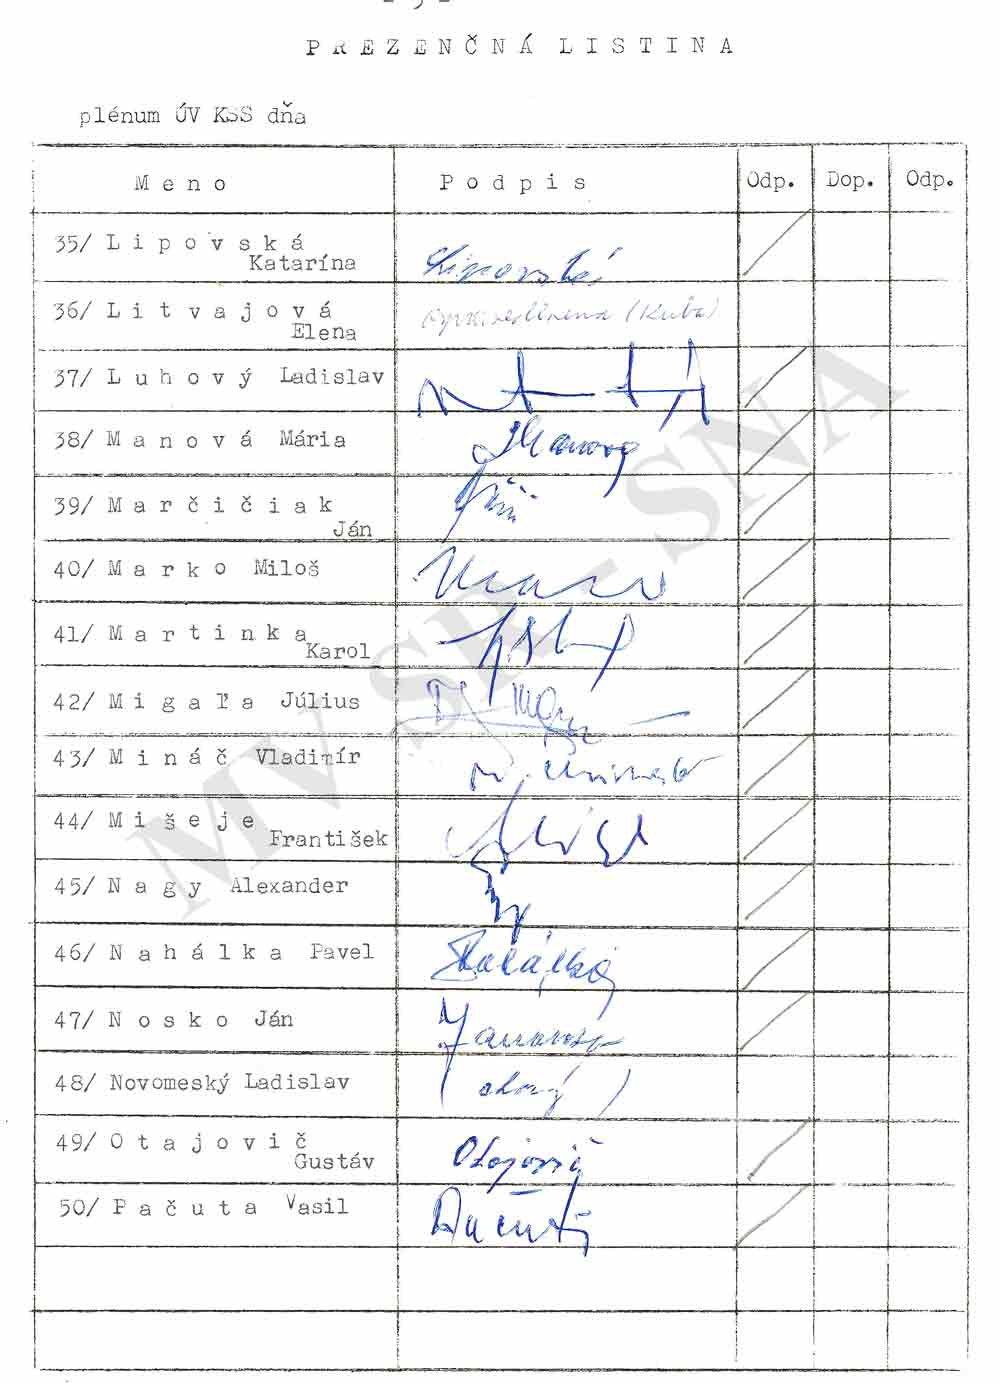 - 3 -
PREZENČNÁ LISTINA
plénum ÚV KSS dňa
Meno Podpis Odp. Dop. Odp.
35/ Lipovská
Katarína Lipovská
36/ Litvajová
Elena ospravedlnená (Kuba)
37/ Luhový Ladislav
38/ Manová Mária Manová
39/ Marčičiak
Ján
40/ Marko Miloš
41/ Martinka
Karol
42/ Migaľa Július
43/ Mináč Vladimír
44/ Mišeje
František
45/ Nagy Alexander
46/ Nahálka Pavel
47/ Nosko Ján
48/ Novomeský Ladislav (chorý)
49/ Otajovič
Gustáv Otajovič
50/ Pačuta Vasil Pačuta
MV SR - SNA